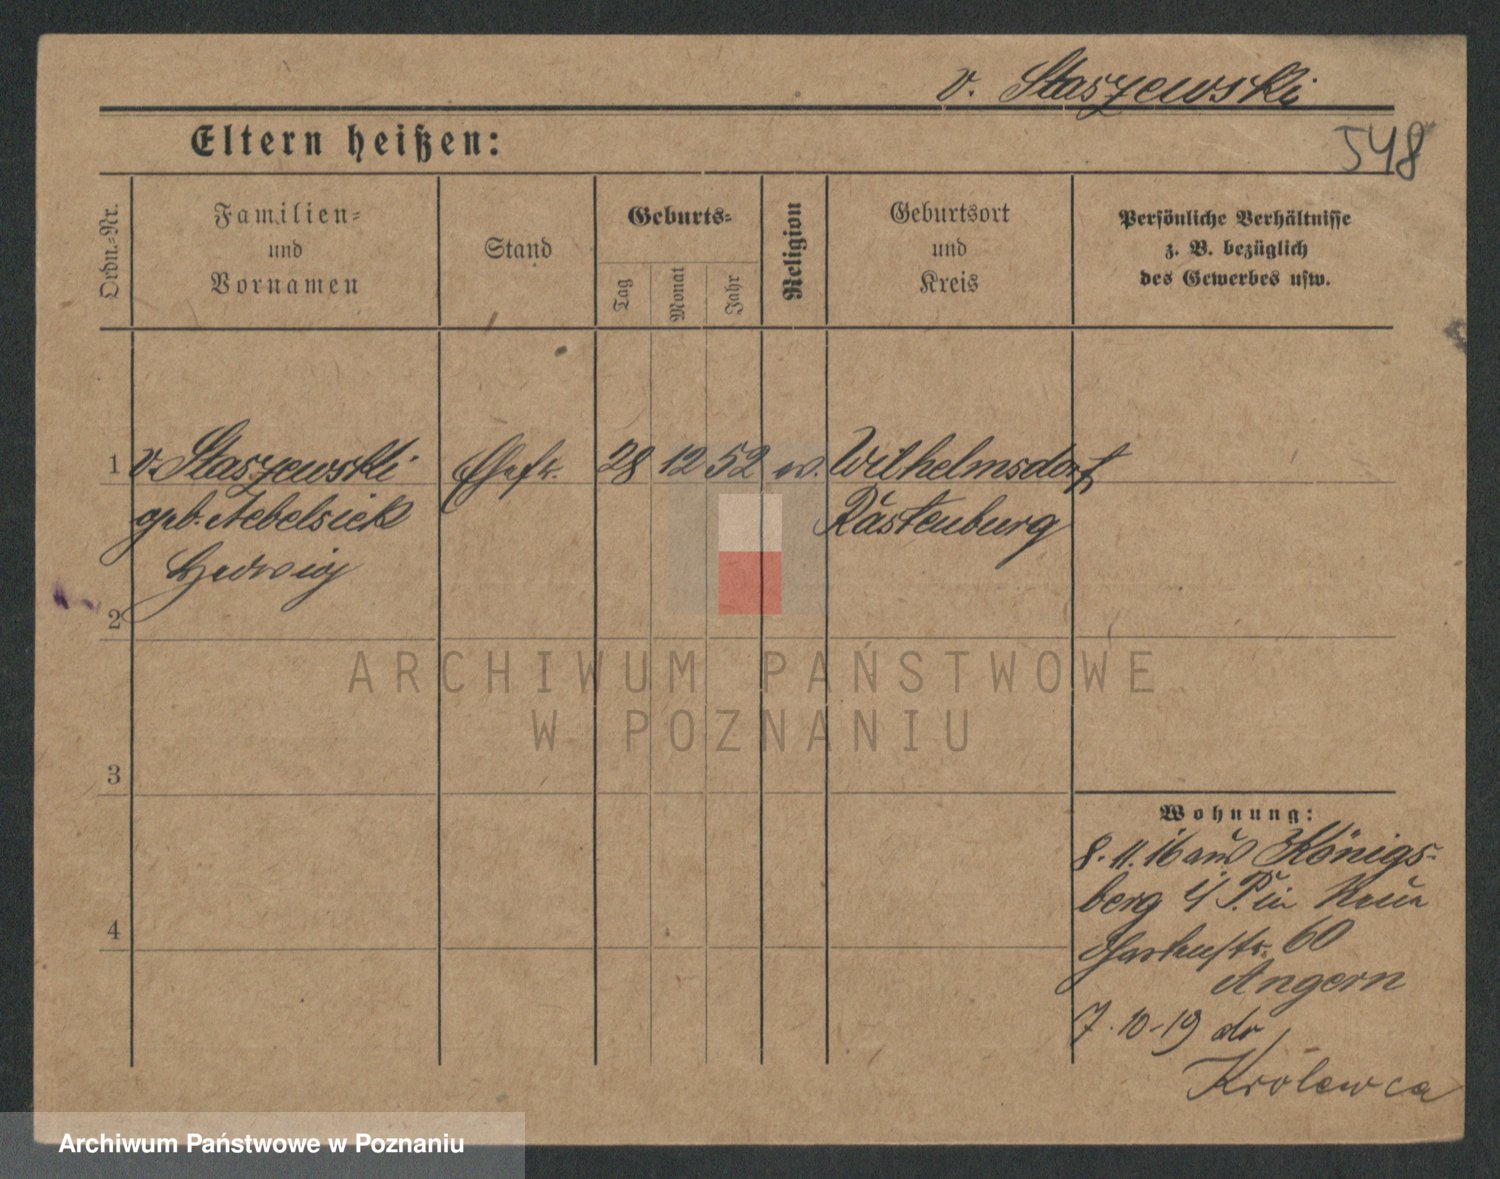 v. Staszewski
Eltern heißen:
548
Ordn.-Nr.
Familien-
und
Vornamen
Stand
Geburts-
Tag
Monat
Jahr
Religion
Geburtsort
und
Kreis
Persönliche Verhältnisse
z. B. bezüglich
des Gewerbes usw.
1 v. Staszewski Ehefr. 28 12 52 ev. Wilhelmsdorf
geb. Nebelsiek Rastenburg
Hedwig
2
ARCHIWUM PAŃSTWOWE
W POZNANIU
3
Wohnung:
8. 11. 16 aus Königs-
berg i/P. in
4
Gartenstr. 60
Angern
7. 10-19 do
Królewca
Archiwum Państwowe w Poznaniu